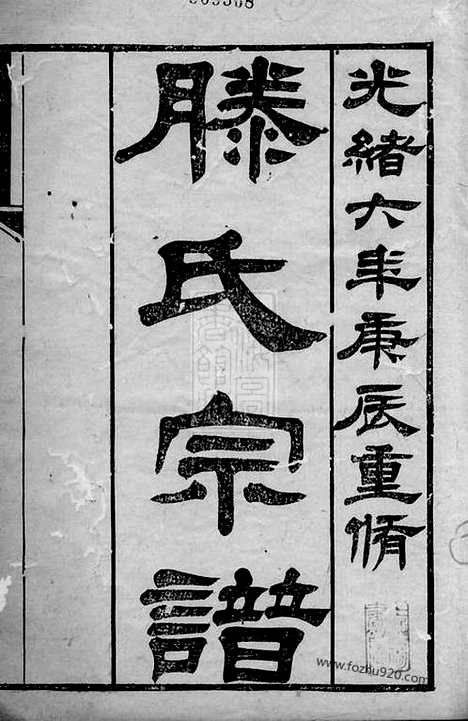 光緒六年庚辰重脩
滕氏宗譜
www.fozhu920.com